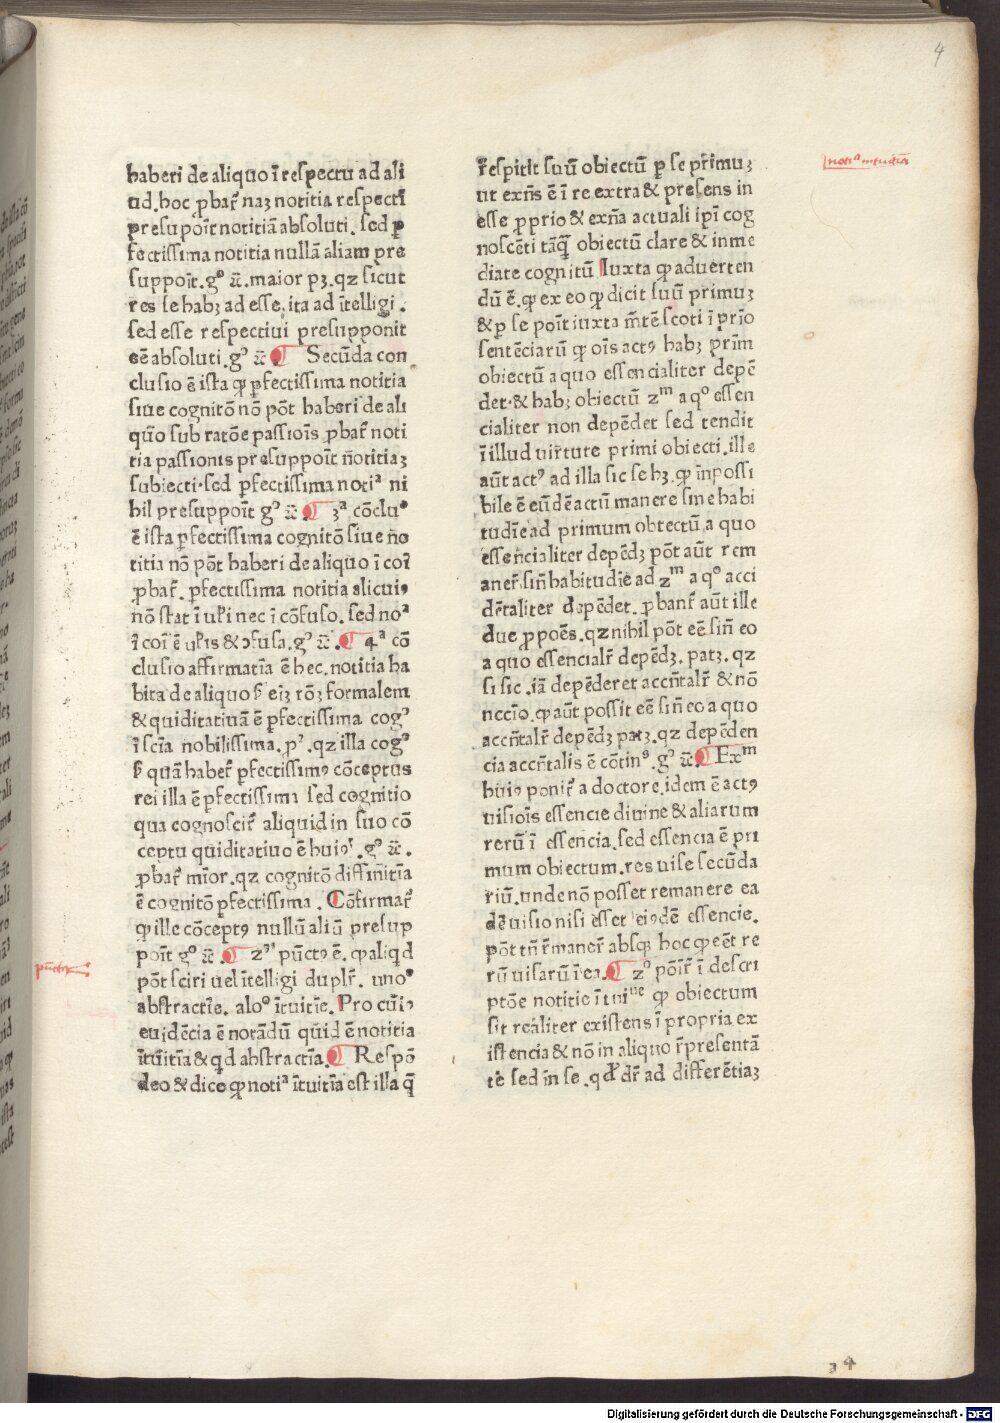 4
haberi de aliquo ī respectu ad ali
ud. hoc ꝓbaꝛ̄ naꝫ notitia respecti
presupoīt notitiā absoluti. sed ꝑ
fectissima notitia nullā aliam pre
suppoīt. gº ⁊c̄. maior pꝫ. qꝫ sicut
res se habꝫ ad esse. ita ad ītelligi.
sed esse respectiui presupponit
eē absoluti. gº ⁊c̄ ¶ Secūda con
clusio ē ista ꝙ ꝑfectissima notitia
siue cognitō nō pōt haberi de ali
quo sub ratōe passiōīs ꝓbaꝛ̄ noti
tia passionis presuppoīt n̄otitiaꝫ
subiecti. sed ꝑfectissima notiª ni
hil presuppoīt gº ⁊c̄ ¶ 3ª cōcluº
ē ista ꝑfectissima cognitō siue no
titia nō pōt haberi de aliquo ī coī
ꝓbaꝛ̄. ꝑfectissima notitia alicuiꝰ
nō stat ī uɫ̄i nec ī cōfuso. sed noª
ī coī ē uɫ̄is & ꝯfusa. gº ⁊c̄. ¶ 4ª cō
clusio affirmatīa ē hec. notitia ha
bita de aliquo ẜ eiꝫ rōꝫ formalem
& quiditatiuā ē ꝑfectissima cogº
ī scīa nobilissima. pº. qꝫ illa cogº
ẜ quā habeꝛ̄ ꝑfectissimꝰ cōceptus
rei illa ē ꝑfectissima sed cognitio
qua cognosciꝛ̄ aliquid in suo cō
ceptu quiditatiuo ē huiꝰ. gº ⁊c̄.
ꝓbaꝛ̄ mīor. qꝫ cognitō diffīnitīa
ē cognitō ꝑfectissima. Cōfirmaꝛ̄
ꝙ ille cōceptꝰ nullū aliū presup
poīt gº ⁊c̄ ¶ 2º pūctꝰ ē. ꝙ aliqͥd
pōt sciri uel ītelligi dupɫr̄. unoº
abstractīe. aloº ītuitīe. Pro cuiꝰ
euidēcia ē notādū quid ē notitia
ītuitīa & qͥd abstractīa ¶ Respō
deo & dico ꝙ notiª ītuitīa est illa q̄
punctꝰ
notiª intuitiua
respicit suū obiectū ꝑ se prīmuꝫ
ut exn̄s ē ī re extra & presens in
esse ꝓprio & exn̄a actuali ipī cog
noscēti tāqͣ̄ obiectū clare & inme
diate cognitū Iuxta ꝙ aduerten
dū ē. ꝙ ex eo ꝙ dicit suū primuꝫ
& ꝑ se poīt iuxta mētē scoti ī prīo
sentēciarū ꝙ oīs actꝰ habꝫ prīm
obiectū a quo essencialiter depē
det. & habꝫ obiectū 2ᵐ a qº essen
cialiter non depēdet sed tendit
ī illud uirtute primi obiecti. ille
aūt actꝰ ad illa sic se hꝫ. ꝙ īnpossi
bile ē eūdē actū manere sine habi
tudīe ad primum obiectū a quo
essencialiter depēdꝫ pōt aūt rem
aneꝛ̄. sīn̄ habitudīe ad 2ᵐ a qº acci
dētaliter depēdet. ꝓbanꝛ̄ aūt ille
due ꝓpoēs. qꝫ nihil pōt eē sīn̄ eo
a quo essencialr̄ depēdꝫ. patꝫ. qꝫ
si sic. iā depēderet accn̄talr̄ & nō
nccīo. ꝙ aūt possit eē sīn̄ eo a quo
accn̄talr̄ depēdꝫ patꝫ. qꝫ depēden
cia accn̄talis ē cōtinˢ. gº ⁊c̄ ¶ Exᵐ
huiꝰ poniꝛ̄ a doctore. idem ē actꝰ
uisiōīs essencie diuine & aliarum
rerū ī essencia. sed essencia ē pri
mum obiectum. res uise secūda
riū. unde nō posset remanere ea
dē uisio nisi esset eiꝰdē essencie.
pōt tn̄ r̄maneꝛ̄ absqꝫ hoc ꝙ eēt re
rū uisarū ī ea. ¶ 2º poīꝛ̄ ī descri
ptōe notitie ītuiⁿᵉ ꝙ obiectum
sit realiter existens ī propria ex
istencia & nō in aliquo r̄presentā
te sed in se. qd̄ dr̄ ad differētiaꝫ
34
Digitalisierung gefördert durch die Deutsche Forschungsgemeinschaft - DFG